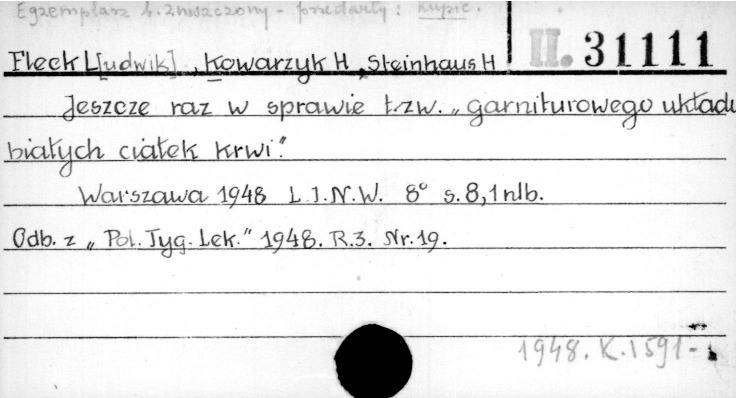 Egzemplarz b. zniszczony - podarty : kupić.
II. 31111
Fleck L[udwik], Kowarzyk H, Steinhaus H
Jeszcze raz w sprawie t.zw. „garniturowego układu
białych ciałek krwi."
Warszawa 1948 L.I.N.W. 8° s. 8, 1 nlb.
Odb. z „Pol. Tyg. Lek." 1948. R.3. Nr.19.
1948. K. 1591-